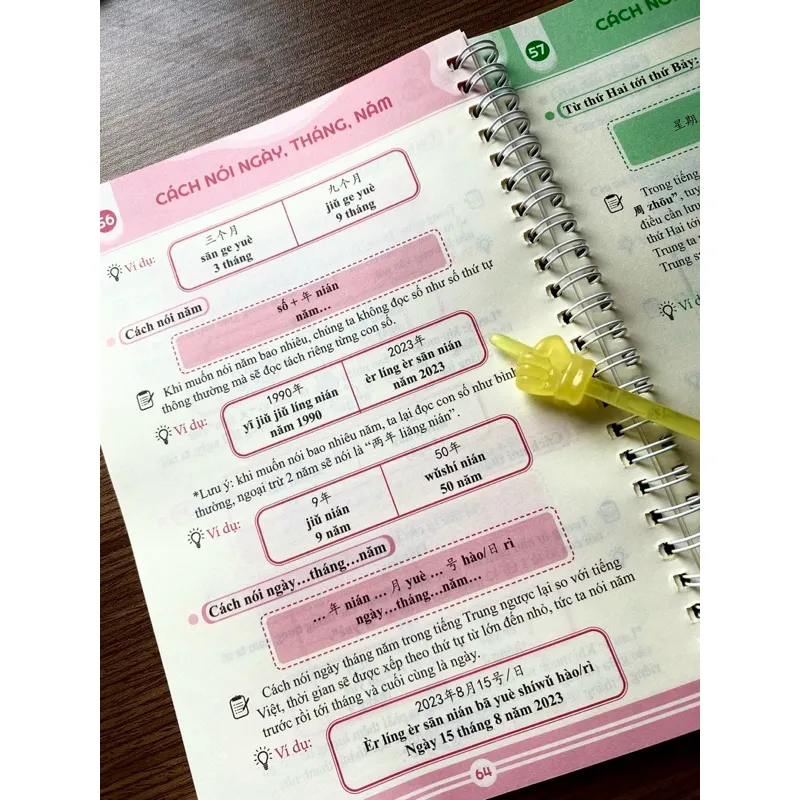 56
CÁCH NÓI NGÀY, THÁNG, NĂM
Ví dụ:
三个月
sān ge yuè
3 tháng
九个月
jiǔ ge yuè
9 tháng
Cách nói năm
số + 年 nián
năm...
Khi muốn nói năm bao nhiêu, chúng ta không đọc số như số thứ tự
thông thường mà sẽ đọc tách riêng từng con số.
Ví dụ:
1990年
yī jiǔ jiǔ líng nián
năm 1990
2023年
èr líng èr sān nián
năm 2023
*Lưu ý: khi muốn nói bao nhiêu năm, ta lại đọc con số như bình
thường, ngoại trừ 2 năm sẽ nói là “两年 liǎng nián”.
Ví dụ:
9年
jiǔ nián
9 năm
50年
wǔshí nián
50 năm
Cách nói ngày...tháng...năm
... 年 nián ... 月 yuè ... 号 hào/日 rì
ngày...tháng...năm...
Cách nói ngày tháng năm trong tiếng Trung ngược lại so với tiếng
Việt, thời gian sẽ được xếp theo thứ tự từ lớn đến nhỏ, tức ta nói năm
trước rồi tới tháng và cuối cùng là ngày.
Ví dụ:
2023年8月15号/日
Èr líng èr sān nián bā yuè shíwǔ hào/rì
Ngày 15 tháng 8 năm 2023
64
57
CÁCH
Từ thứ Hai tới thứ Bảy:
星期
Trong tiếng
周 zhōu”, tuy
điều cần lưu
thứ Hai tới
Trung ta
Trung s
Ví d